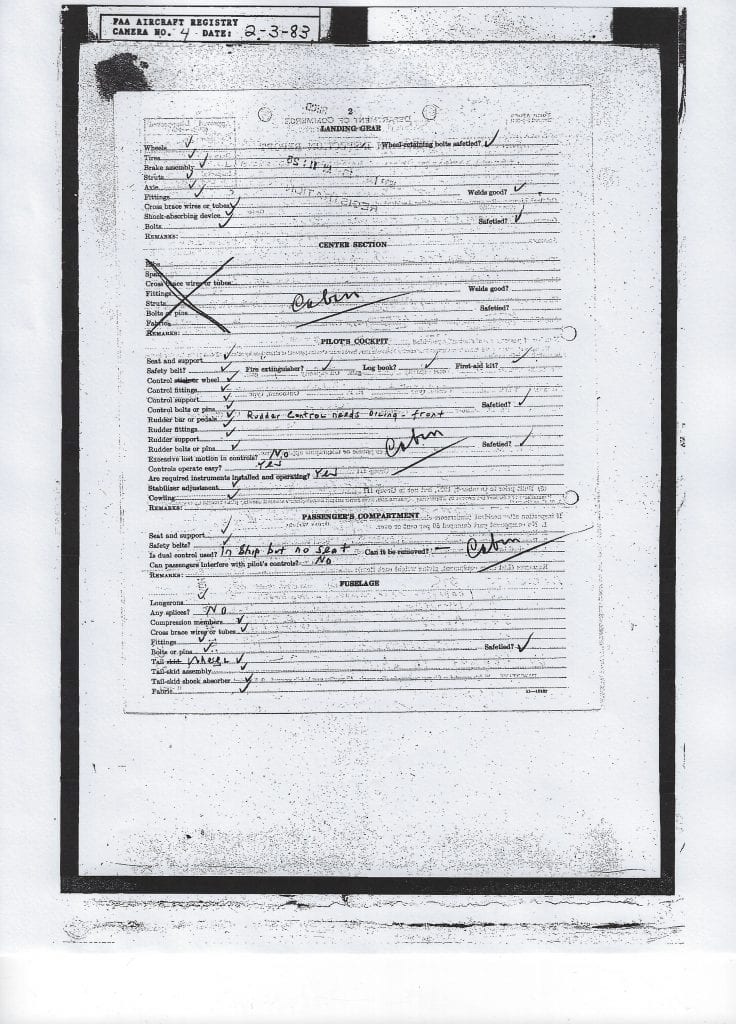 FAA AIRCRAFT REGISTRY
CAMERA NO. 4 DATE: 2-3-83
2
LANDING GEAR
Wheels ✓ Wheel-retaining bolts safetied? ✓
Tires ✓
Brake assembly ✓
Struts ✓
Axle ✓
Fittings ✓ Welds good? ✓
Cross brace wires or tubes ✓
Shock-absorbing device ✓
Bolts ✓ Safetied? ✓
REMARKS:
CENTER SECTION
Ribs
Spars
Cross brace wires or tubes
Fittings Cabin Welds good?
Struts
Bolts or pins Safetied?
Fabric
REMARKS:
PILOT'S COCKPIT
Seat and support ✓
Safety belt? ✓ Fire extinguisher? ✓ Log book? ✓ First-aid kit? ✓
Control stick or wheel ✓
Control fittings ✓
Control support ✓
Control bolts or pins ✓ Safetied? ✓
Rudder bar or pedals ✓ Rudder Control needs oiling - front
Rudder fittings ✓
Rudder support ✓
Rudder bolts or pins ✓ Cabin Safetied? ✓
Excessive lost motion in controls? No
Controls operate easy? Yes
Are required instruments installed and operating? Yes
Stabilizer adjustment ✓
Cowling ✓
REMARKS:
PASSENGER'S COMPARTMENT
Seat and support ✓
Safety belts? ✓
Is dual control used? In Ship but no seat Can it be removed? — Cabin
Can passengers interfere with pilot's controls? No
REMARKS:
FUSELAGE
Longerons ✓
Any splices? No
Compression members ✓
Cross brace wires or tubes ✓
Fittings ✓
Bolts or pins ✓ Safetied? ✓
Tail skid wheel ✓
Tail-skid assembly ✓
Tail-skid shock absorber ✓
Fabric ✓